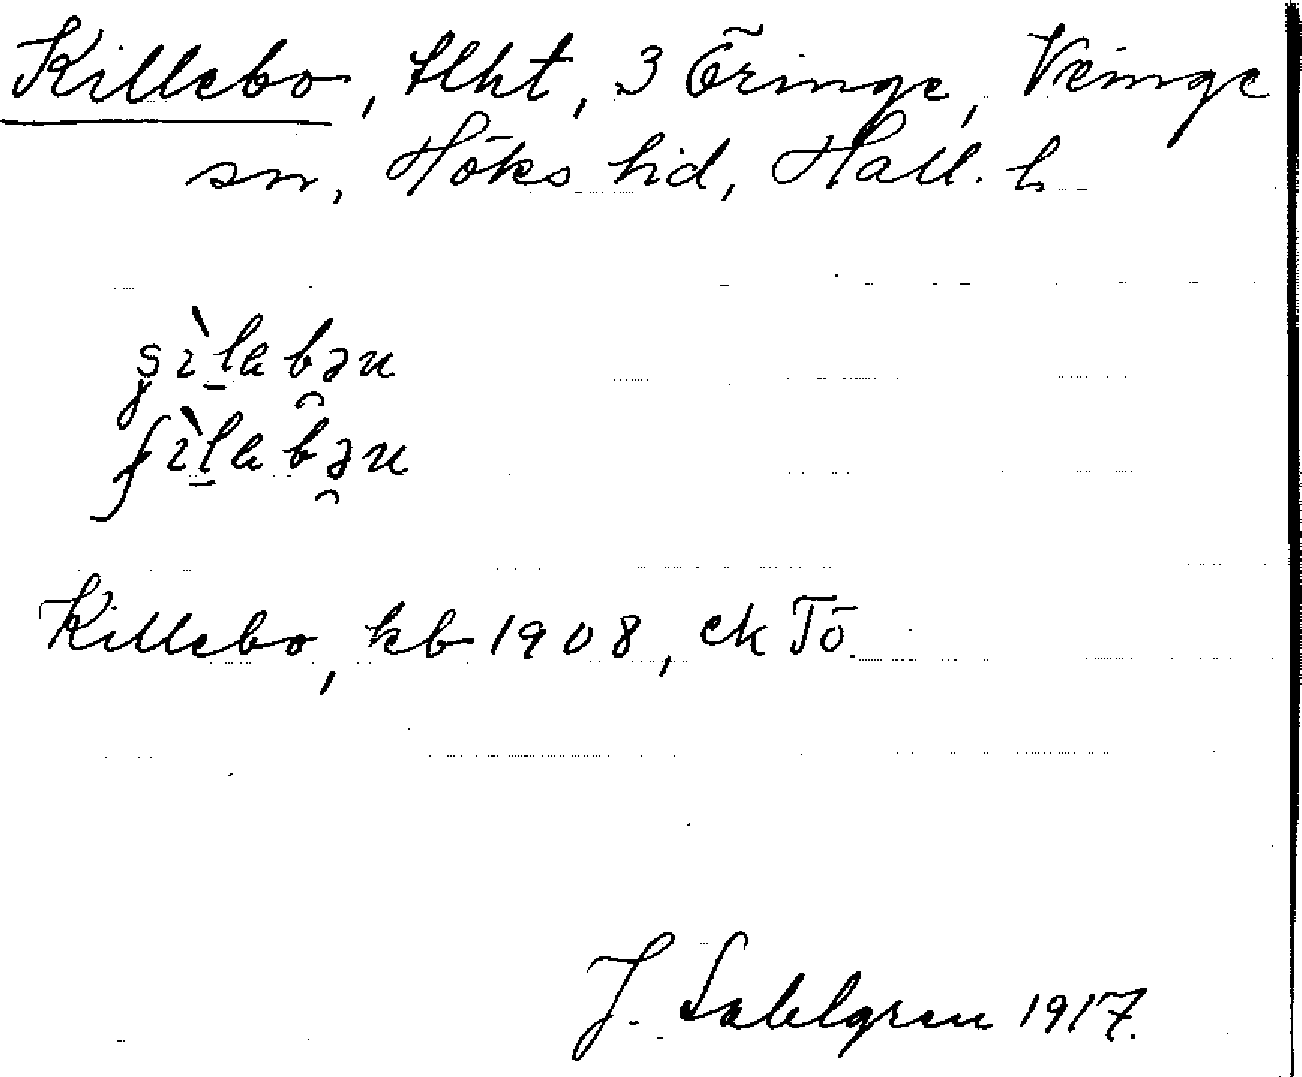 Killebo, tlht, 3 Öringe, Veinge
sn, Höks hd, Hall. l.
Killebo, kb 1908, ek Tö.
J. Sahlgren 1917.